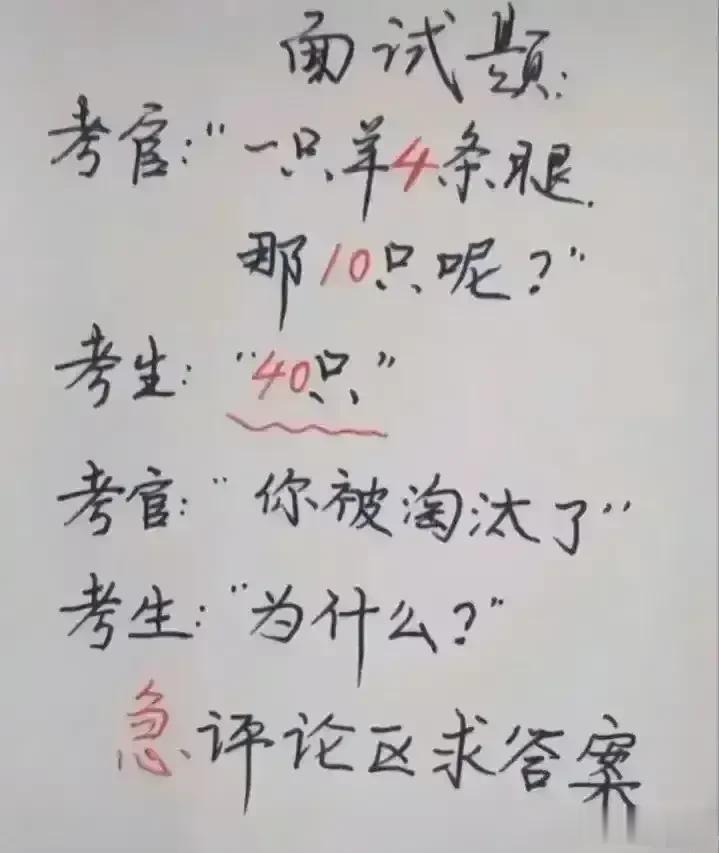 面试题:
考官:"一只羊4条腿.
那10只呢?"
考生:"40只"
考官:"你被淘汰了"
考生:"为什么?"
急评论区求答案